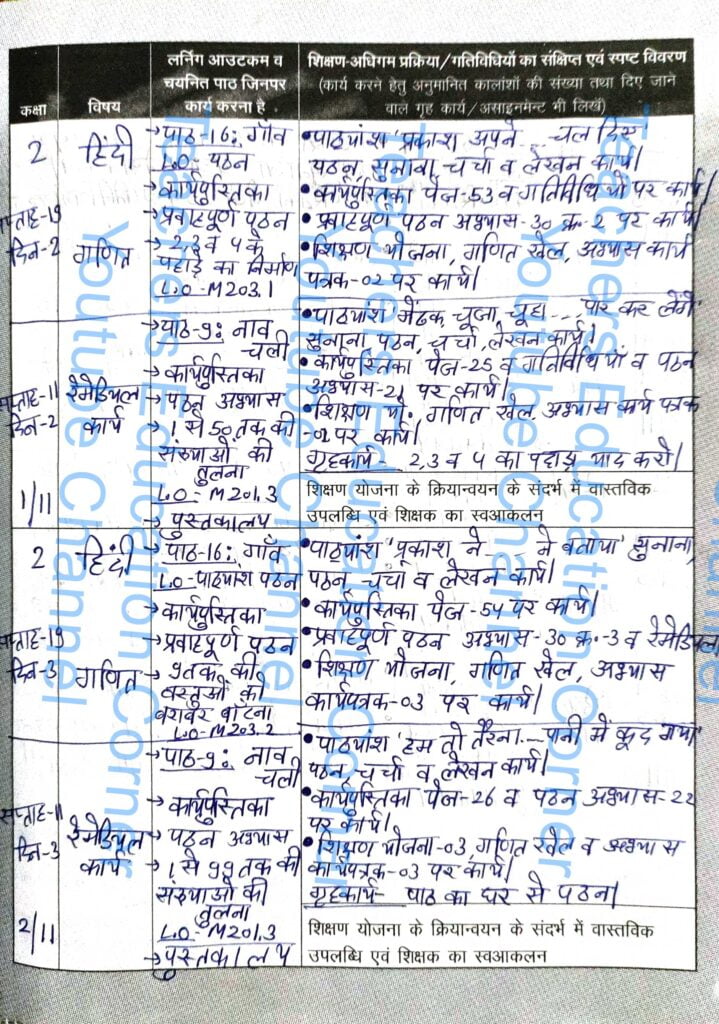 कक्षा
विषय
लर्निंग आउटकम व
चयनित पाठ जिनपर
कार्य करना है
शिक्षण-अधिगम प्रक्रिया/गतिविधियों का संक्षिप्त एवं स्पष्ट विवरण
(कार्य करने हेतु अनुमानित कालांशों की संख्या तथा दिए जाने
वाल गृह कार्य/असाइनमेन्ट भी लिखें)
2
हिंदी
→ पाठ-16: गाँव
L.O- पठन
→ कार्यपुस्तिका
→ प्रवाहपूर्ण पठन
• पाठ्यांश 'प्रकाश अपने ... चल दिए'
पठन, सुनाना, चर्चा व लेखन कार्य।
• कार्यपुस्तिका पेज-53 व गतिविधियों पर कार्य।
• प्रवाहपूर्ण पठन अभ्यास-30 क्र.-2 पर कार्य।
सप्ताह-19
दिन-2
गणित
→ 2,3 व 4 के
पहाड़े का निर्माण
L.O-M203.1
• शिक्षण योजना, गणित खेल, अभ्यास कार्य
पत्रक-02 पर कार्य।
सप्ताह-11
दिन-2
रेमेडियल
कार्य
→ पाठ-9: नाव
चली
→ कार्यपुस्तिका
→ पठन अभ्यास
→ 1 से 50 तक की
संख्याओं की
तुलना
L.O- M201.3
→ पुस्तकालय
• पाठ्यांश 'मेंढक, चूजा, चूहा ... पार कर लेंगे'
सुनाना, पठन, चर्चा, लेखन कार्य।
• कार्यपुस्तिका पेज-25 व गतिविधियों व पठन
अभ्यास-21 पर कार्य।
• शिक्षण यो. गणित खेल, अभ्यास कार्य पत्रक
-02 पर कार्य।
गृहकार्य- 2,3 व 4 का पहाड़ा याद करो।
1/11
शिक्षण योजना के क्रियान्वयन के संदर्भ में वास्तविक
उपलब्धि एवं शिक्षक का स्वआकलन
2
हिंदी
→ पाठ-16: गाँव
L.O-पाठ्यांश पठन
→ कार्यपुस्तिका
→ प्रवाहपूर्ण पठन
• पाठ्यांश 'प्रकाश ने ... ने बताया' सुनाना,
पठन, चर्चा व लेखन कार्य।
• कार्यपुस्तिका पेज-54 पर कार्य।
• प्रवाहपूर्ण पठन अभ्यास-30 क्र.-3 व रेमेडियल
सप्ताह-19
दिन-3
गणित
→ 9 तक की
वस्तुओं को
बराबर बाँटना
L.O-M203.2
• शिक्षण योजना, गणित खेल, अभ्यास
कार्यपत्रक-03 पर कार्य।
सप्ताह-11
दिन-3
रेमेडियल
कार्य
→ पाठ-9: नाव
चली
→ कार्यपुस्तिका
→ पठन अभ्यास
→ 1 से 99 तक की
संख्याओं की
तुलना
L.O- M201.3
→ पुस्तकालय
• पाठ्यांश 'हम तो तैरना ... पानी में कूद गया'
पठन, चर्चा व लेखन कार्य।
• कार्यपुस्तिका पेज-26 व पठन अभ्यास-22
पर कार्य।
• शिक्षण योजना-03, गणित खेल व अभ्यास
कार्यपत्रक-03 पर कार्य।
गृहकार्य- पाठ का घर से पठन।
2/11
शिक्षण योजना के क्रियान्वयन के संदर्भ में वास्तविक
उपलब्धि एवं शिक्षक का स्वआकलन
Teachers Education Corner
Youtube Channel
Teachers Education Corner
Youtube Channel
Teachers Education Corner
Youtube Channel